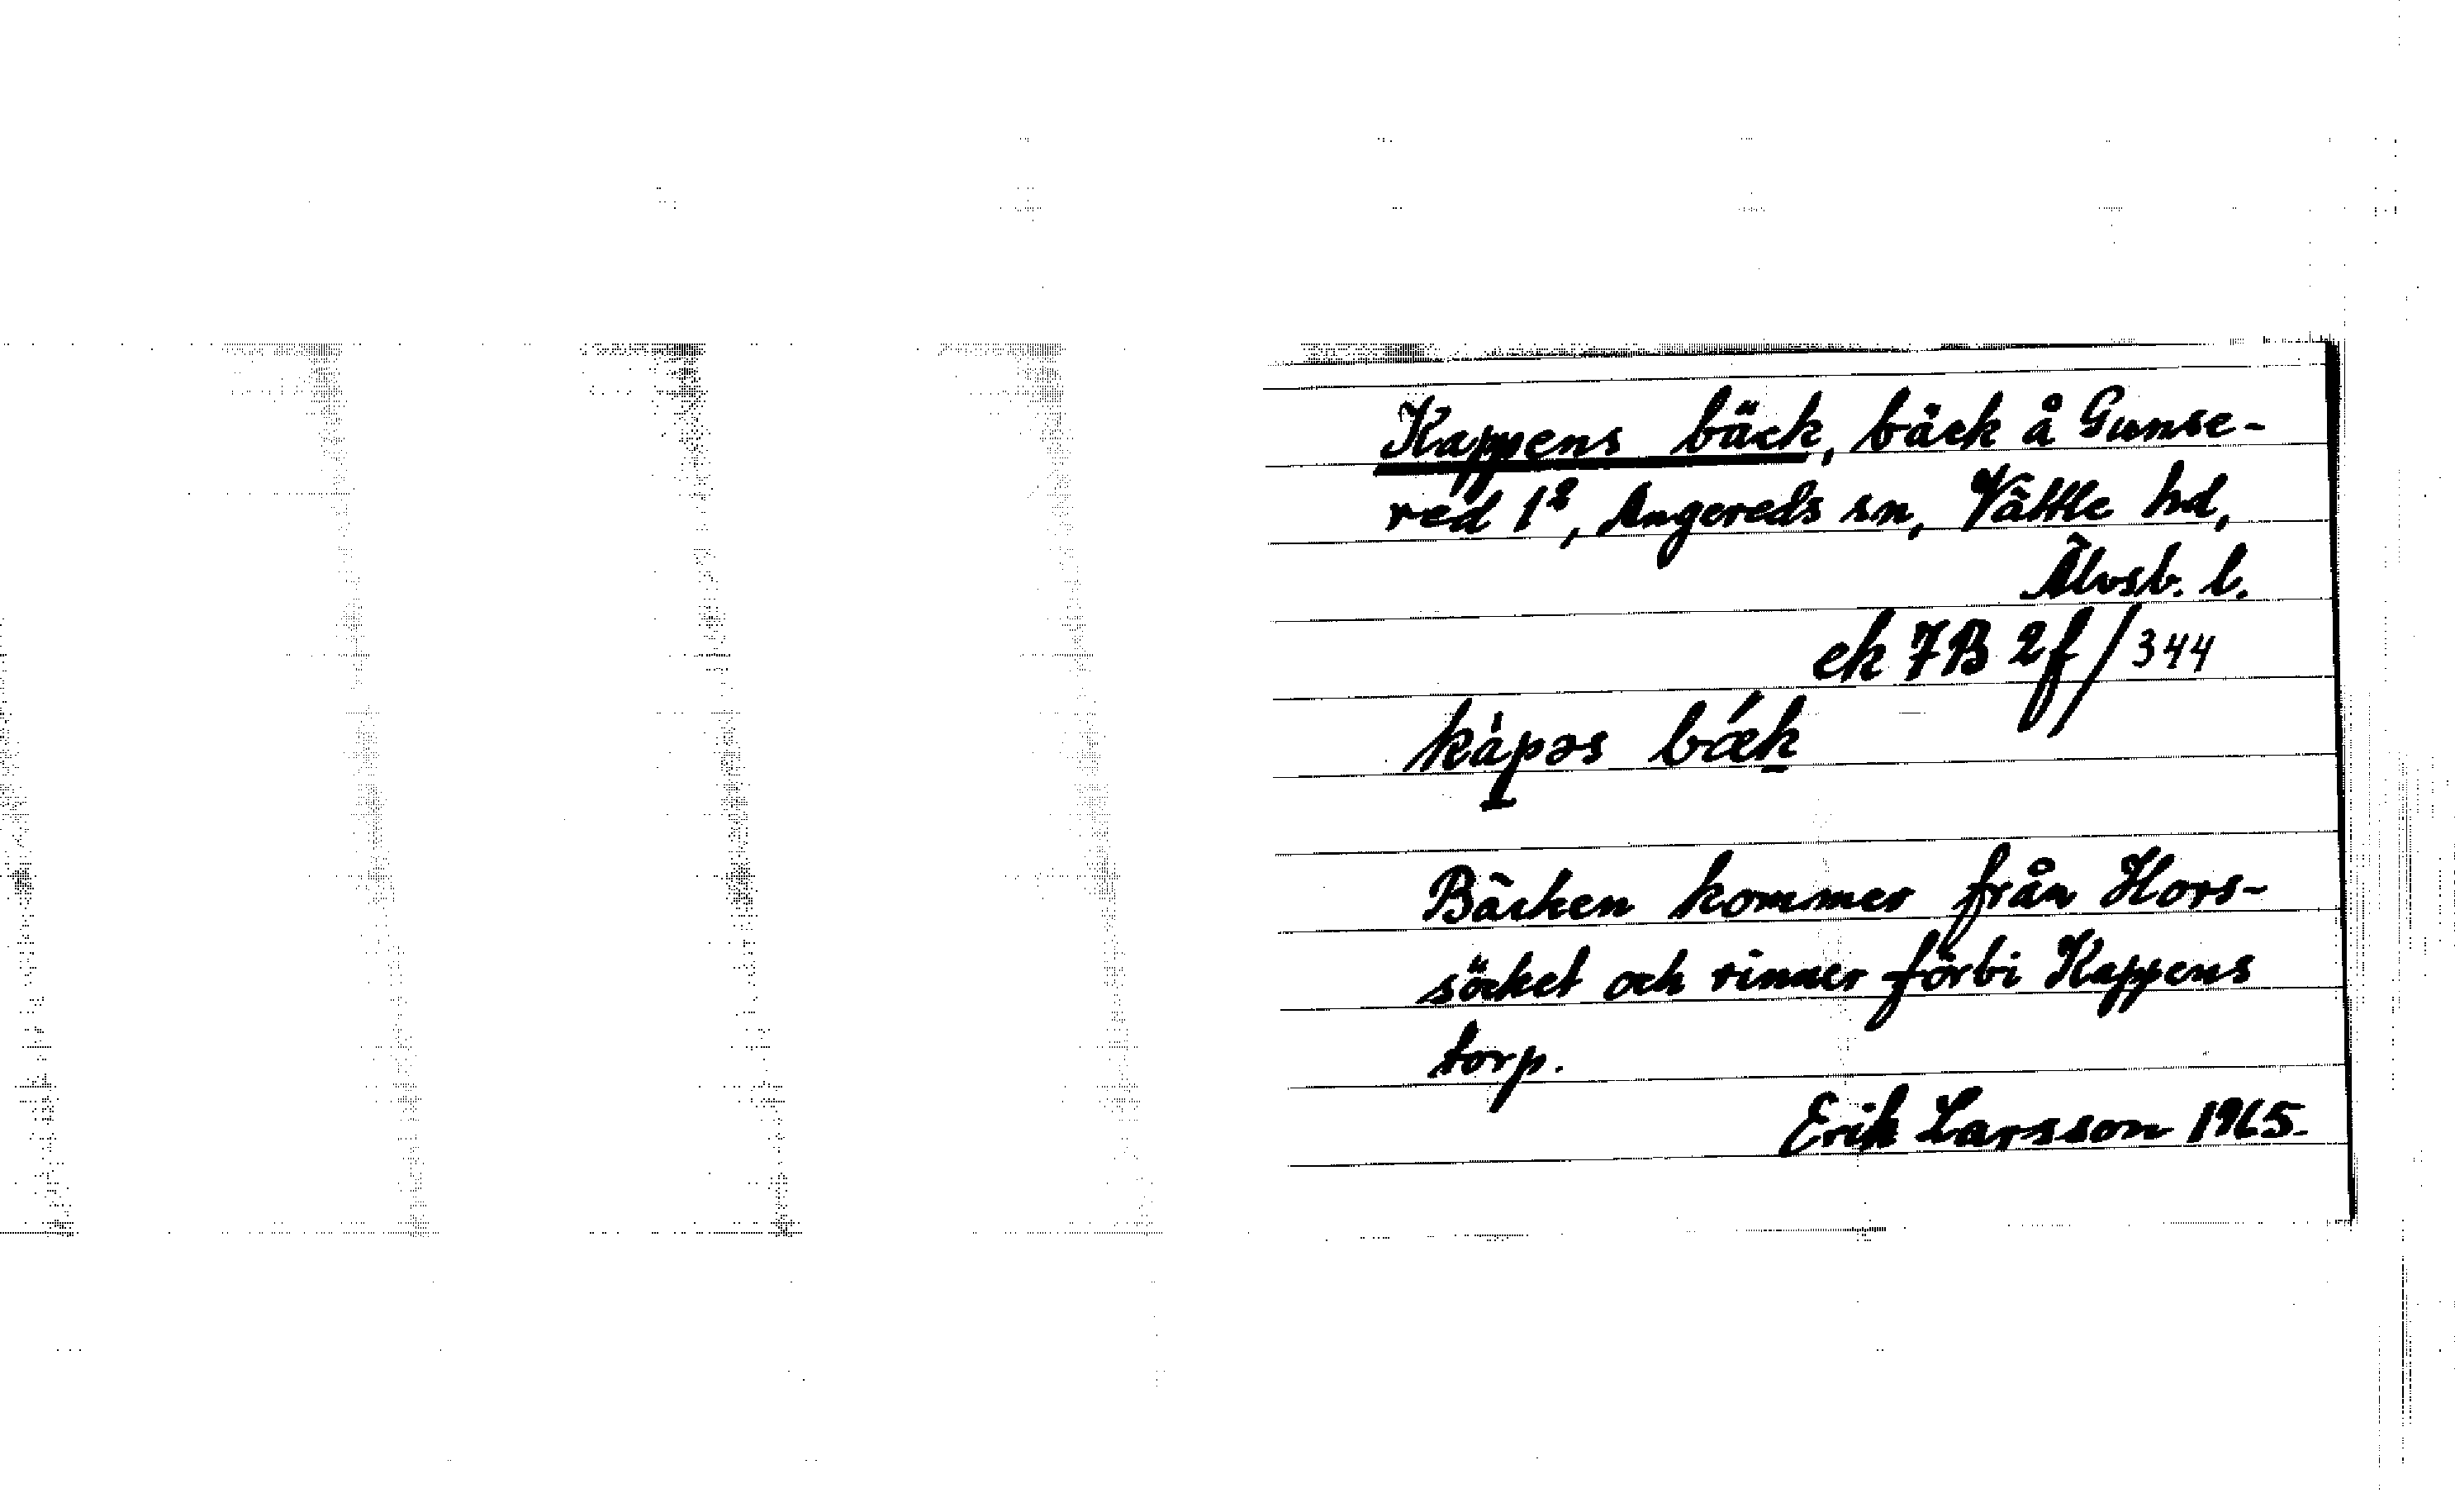 Kappens bäck, bäck å Gunse-
red 1², Angereds sn, Vättle hd,
Älvsb. l.
ek 7B 2f/344
kàpəs bǽk
Bäcken kommer från Hors-
säcket och rinner förbi Kappens
torp.
Erik Larsson 1965.